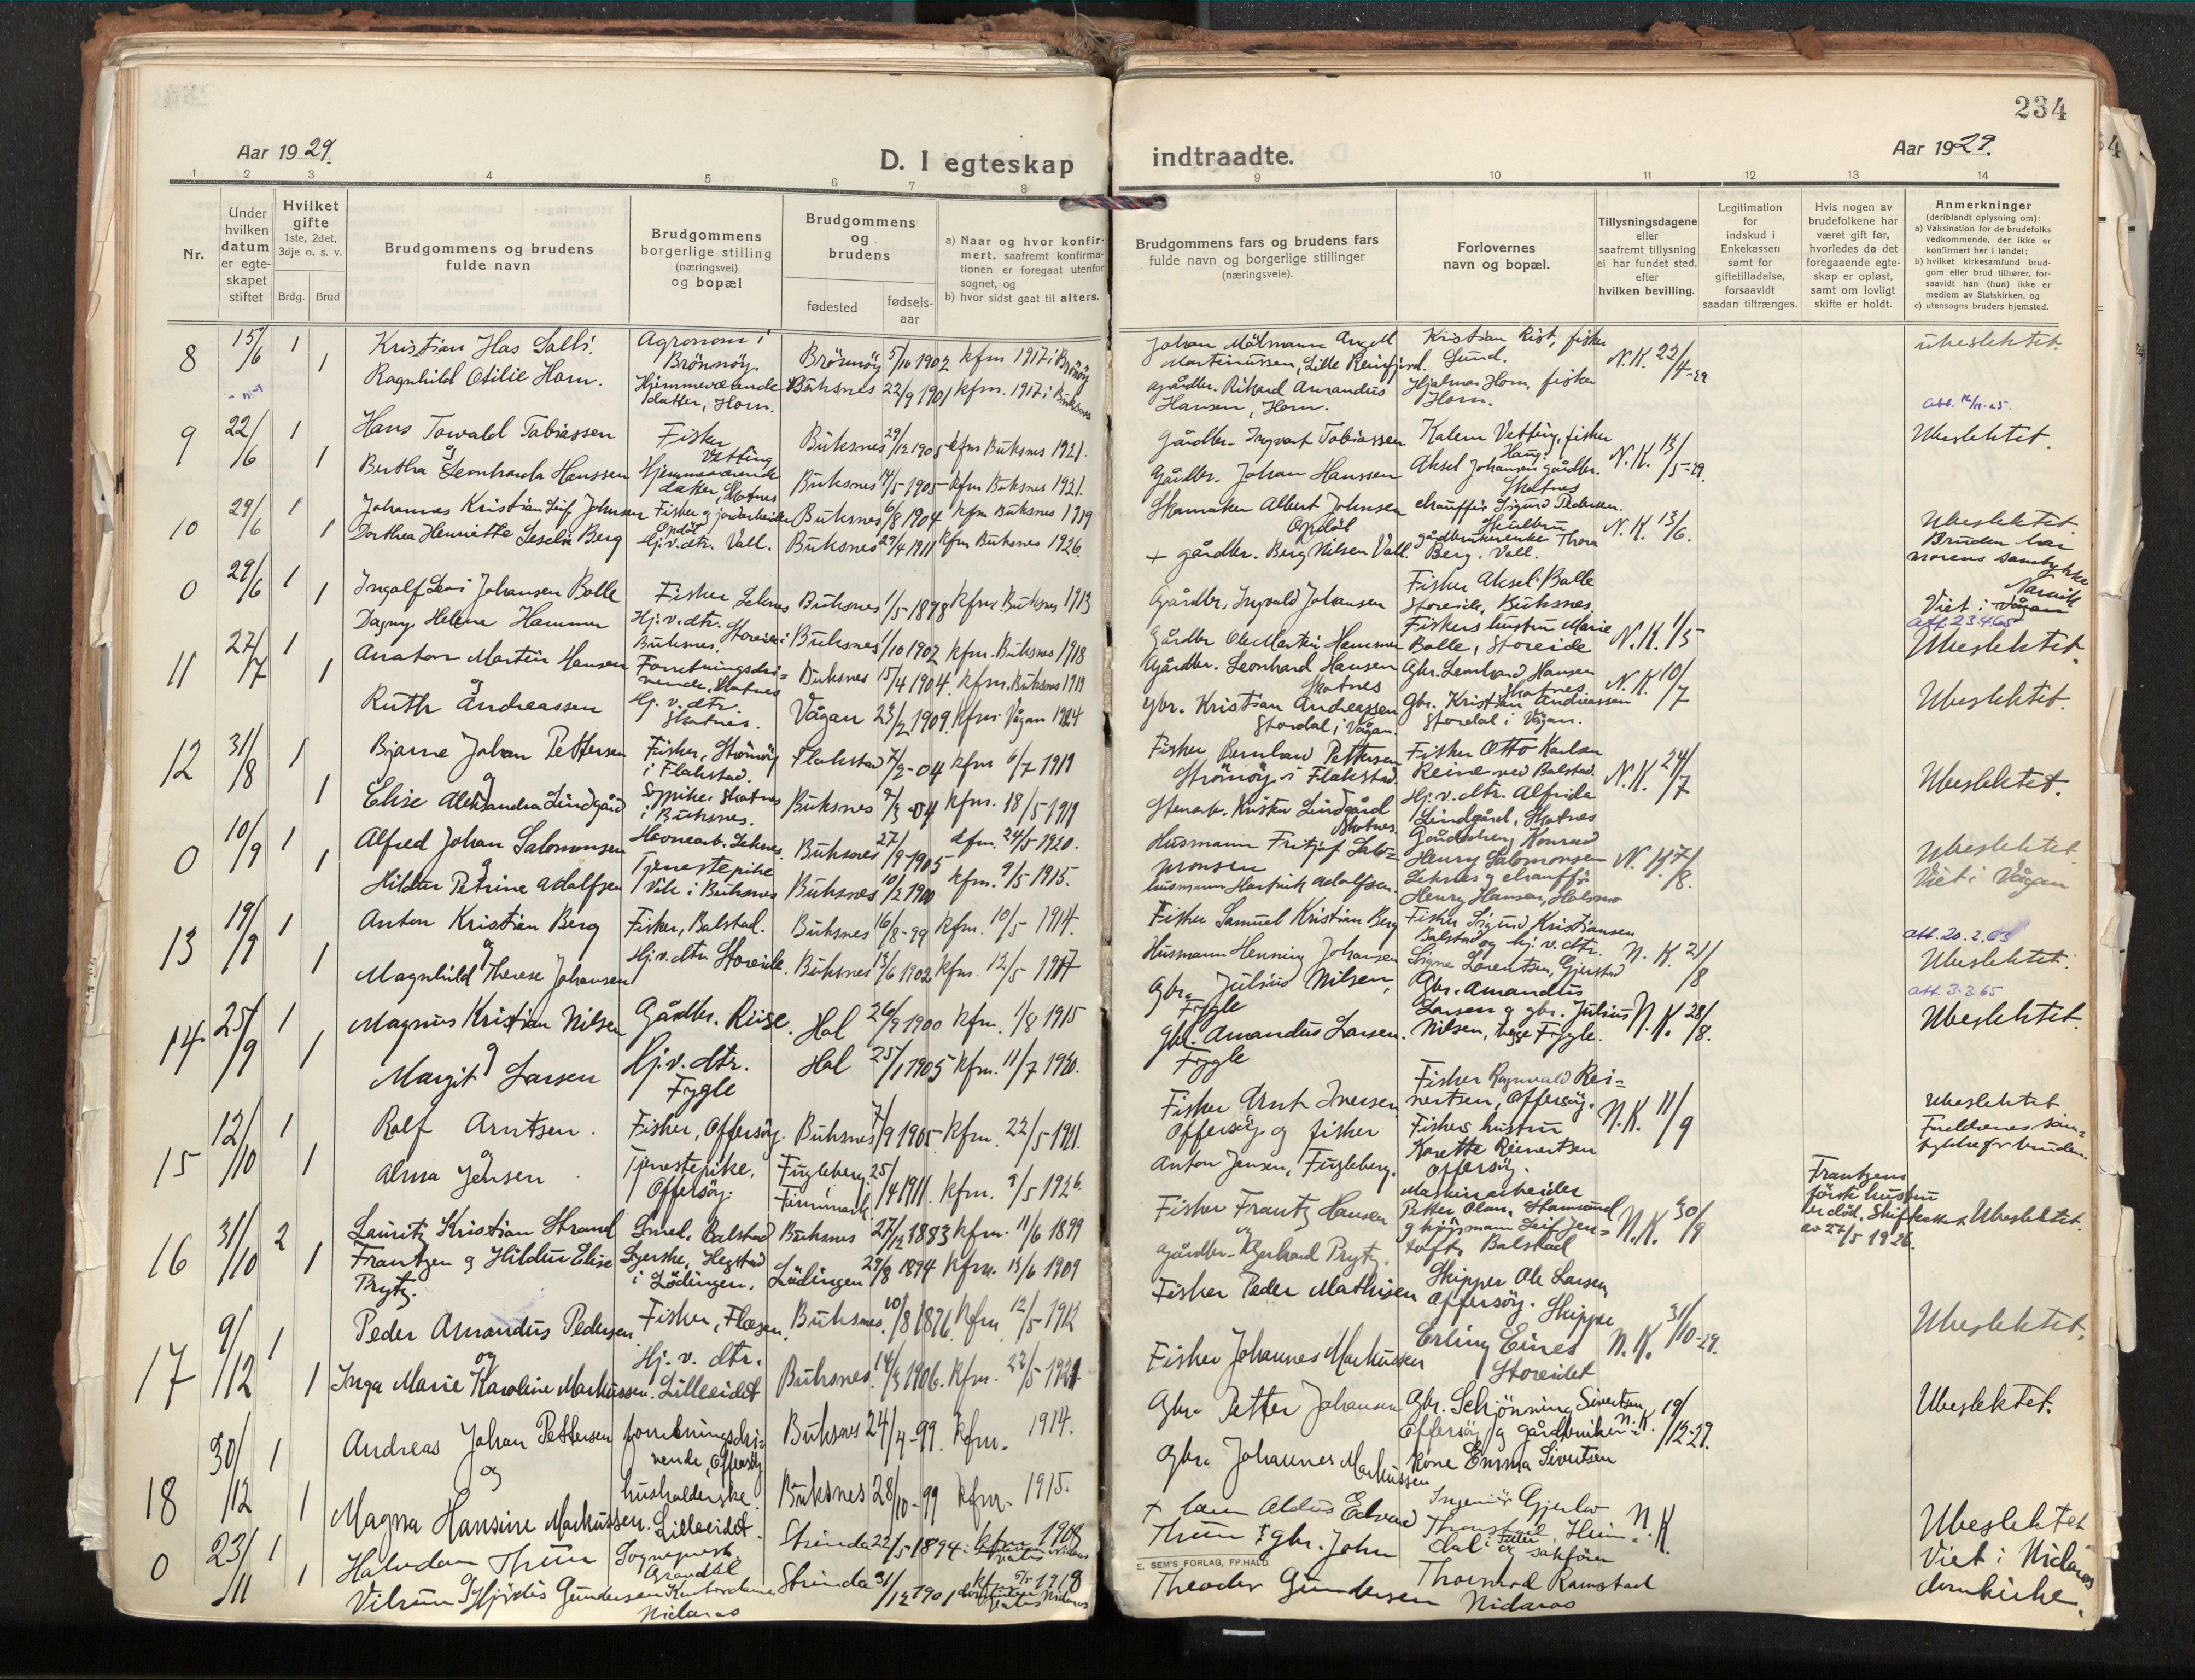 234
Aar 1929.
D. I egteskap
indtraadte.
Aar 1929.
1 2 3 4 5 6 7 8 9 10 11 12 13 14
Nr.
Under hvilken datum er egte-skapet stiftet
Hvilket gifte
1ste, 2det, 3dje o. s. v.
Brdg. Brud
Brudgommens og brudens
fulde navn
Brudgommens
borgerlige stilling
(næringsvei)
og bopæl
Brudgommens
og
brudens
fødested
fødsels-
aar
a) Naar og hvor konfir-
mert, saafremt konfirma-
tionen er foregaat utenfor
sognet, og
b) hvor sidst gaat til alters.
Brudgommens fars og brudens fars
fulde navn og borgerlige stillinger
(næringsveie).
Forlovernes
navn og bopæl.
Tillysningsdagene
eller
saafremt tillysning
ei har fundet sted,
efter
hvilken bevilling.
Legitimation
for
indskud i
Enkekassen
samt for
giftetilladelse,
forsaavidt
saadan tiltrænges.
Hvis nogen av
brudefolkene har
været gift før,
hvorledes da det
foregaaende egte-
skap er opløst,
samt om lovligt
skifte er holdt.
Anmerkninger
(deriblandt oplysning om):
a) Vaksination for de brudefolks
vedkommende, der ikke er
konfirmert her i landet;
b) hvilket kirkesamfund brud-
gom eller brud tilhører, for-
saavidt han (hun) ikke er
medlem av Statskirken, og
c) utensogns bruders hjemsted.
8 15/6 1 Kristian Has Salls. Agronom i Brönnöy. Brönnöy 5/10 1902 kfm 1917 i Brönöy
Johan Martinussen, Lille Kristian Rist, fisker Sund. N.K. 22/4-29 Ubeslektet.
1 Ragnhild Otilie Horn. Hjemmeværende datter, Horn. Buksnes 22/9 1901 kfm. 1917 i Buksnes
gårdbr. Rikard Amandus Hansen, Horn. Hjalmar Horn, fisker Horn.
9 22/6 1 Hans Towald Tobiassen Fisker Vetting Buksnes 29/12 1905 kfm Buksnes 1921.
Gårdbr. Ingvart Tobiassen Kalem Vetting, fisker Haug. N.K. 13/5-29. Ubeslektet.
og
1 Bertha Leonharda Hanssen Hjemmeværende datter, Skotnes Buksnes 14/5-1905 kfm Buksnes 1921.
Gårdbr. Johan Hanssen Aksel Johansen gårdbr. Skotnes
10 29/6 1 Johannes Kristian Leif Johnsen Fisker og jordarbeider Opdöl Buksnes 6/8 1904 kfm Buksnes 1919
Skomaker Albert Johnsen Opdöl chauffør Sigurd Pedersen. N.K. 13/6. Ubeslektet
1 Dorthea Henriette Berg Hj.v.dtr. Vall. Buksnes 29/4 1911 kfm Buksnes 1926
+ gårdbr. Berg Nilsen Vall. gårdbrukerenke Thora Berg. Vall. Bruden har morens samtykke
0 29/6 1 Ingolf Levi Johansen Bolle Fisker, Leknes Buksnes 1/5 1898 kfm. Buksnes 1913
Gårdbr. Ingvald Johansen Fisker Aksel Bolle Storeide, Buksnes. Viet i Vågan
1 Dagny Helene Hammer Hj.v.dtr. Storeide i Buksnes. Buksnes 1/10 1902 kfm. Buksnes 1918
Gårdbr Ole Martin Hammer Fiskers hustru Marie Bolle, Storeide N.K. 1/5 att. 23.4.65 Ubeslektet.
11 27/7 1 Anaton Martin Hansen Forretningsdri=vende, Skotnes Buksnes 15/4 1904. kfm. Buksnes 1919
Gårdbr. Leonhard Hansen Skotnes Gbr. Leonhard Hansen Skotnes N.K. 10/7
og
1 Ruth Andreassen Hj. v. dtr. Skotnes. Vågan 23/2 1909. kfm i Vågan 1924
gbr. Kristian Andreassen Stordal i Vågan. Gbr. Kristian Andreassen Stordal i Vågan. Ubeslektet.
12 31/8 1 Bjarne Johan Pettersen Fisker, Strömöy i Flakstad. Flakstad 7/2-04 kfm 6/7 1919
Fisker Bernhard Pettersen Strömöy i Flakstad. Fisker Otto Karlsen Reine ved Balstad. N.K. 24/7 Ubeslektet.
og
1 Elise Aleksandra Lindgård Sypike, Skotnes i Buksnes. Buksnes 9/3-04 kfm. 18/5 1919
Stenarb. Krister Lindgård Skotnes. Hj. v. dtr. Alfrida Lindgård, Skotnes
0 10/9 1 Alfred Johan Salomonsen Havnearb. Leknes. Buksnes 27/9-1905 kfm. 24/5 1920.
Husmann Fritjof Salo=monsen Gårdbr. Konrad Henry Salomonsen Leknes N.K. 7/8. Ubeslektet Viet i Vågan
og
1 Hildur Petrine Adolfsen Tjenestepike Vik i Buksnes Buksnes 10/2 1900 kfm. 9/5 1915.
husmann Hartvik Adolfsen. og chauffør Henry Hansen,
13 19/9 1 Anton Kristian Berg Fisker, Balstad. Buksnes 16/8-99 kfm. 10/5-1914.
Fisker Samuel Kristian Berg Fisker Sigurd Kristiansen Balstad og hj. v. dtr. N. K. 21/8 att. 20.2.63 Ubeslektet.
og
1 Magnhild Therese Johansen Hj.v.dtr. Storeide. Buksnes 13/6 1902 kfm. 12/5 1917
Husmann Henning Johansen Signe Lorentsen, Gjerstad
14 25/9 1 Magnus Kristian Nilsen Gårdbr. Riise. Hol 26/9 1900 kfm. 1/8 1915
Gbr. Julius Nilsen, Fygle Gbr. Amandus Larsen og gbr. Julius N.K. 28/8. att. 3.3.65 Ubeslektet.
og
1 Margit Larsen Hj.v. dtr. Fygle Hol 25/1 1905 kfm. 11/7 1920.
gbr. Amandus Larsen. Fygle Nilsen, begge Fygle.
15 12/10 1 Rolf Arntsen. Fisker, Offersöy. Buksnes 7/9 1905. kfm. 22/5-1921.
Fisker Arnt Iversen Offersöy og fisker Fisker Ragnvald Rei=nertsen, Offersöy. N.K. 11/9 Ubeslektet
og
1 Alma Jensen Tjenestepike, Offersöy. Fugleberg Finnmark 25/4 1911. kfm. 9/5 1926.
Anton Jensen, Fugleberg. Fiskers hustru Karette Reinertsen Offersöy. Foreldrenes sam=tykke for bruden.
16 31/10 2 Lauritz Kristian Strand Smed, Balstad Buksnes 27/12 1883 kfm. 11/6 1899
Fisker Frantz Hansen Maskinarbeider Petter Olsen, Stamsund N.K. 30/9 Frantzens förste hustru er död. Skifteattest av 27/5 1926. Ubeslektet.
1 Frantzen og Hildur Elise Prytz. Syerske, Hegstad i Lödingen. Lödingen 29/8 1894 kfm. 13/6 1909
og
Gårdbr. Gerhard Prytz. og kjöpmann Leif Jen=toft, Balstad
17 9/12 1 Peder Amandus Pedersen Fisker, Flæsen. Buksnes. 10/8 1896. kfm 12/5-1912
Fisker Peder Mathisen Skipper Ole Larsen, Offersöy. Skipper N.K. 31/10-29. Ubeslektet.
og
1 Inga Marie Karoline Markussen. Hj. v. dtr. Lilleeidet Buksnes. 14/3 1906. kfm. 22/5-1921
Fisker Johannes Markussen Erling Eines Storeidet
18 30/12 1 Andreas Johan Pettersen forretningsdri=vende, Offersöy Buksnes 24/4-99. kfm. 1914.
Gbr. Petter Johansen Gbr. Schjönning Sivertsen, Offersöy og gårdbruker= N.K. 19/12-29. Ubeslektet.
og
1 Magna Hansine Markussen. husholderske. Lilleeidet. Buksnes 28/10-99 kfm. 1915.
Gbr. Johannes Markussen kone Emma Sivertsen
0 23/11 1 Halvdan Thun Sogneprest. Strinda 22/5-1894. kfm 1908 Nidaros
+ Edvard Thun Ingeniör Gjerlov Thonstad N.K. Ubeslektet
og
1 Hjördis Gundersen Kontordame Nidaros Strinda 31/12 1901 kfm 5/5 1918 Nidaros
gbr. John Theodor Gundersen og sakförer Thorvald Ramstad Nidaros Viet i Nidaros domkirke.
E. SEM'S FORLAG, FR.HALD.